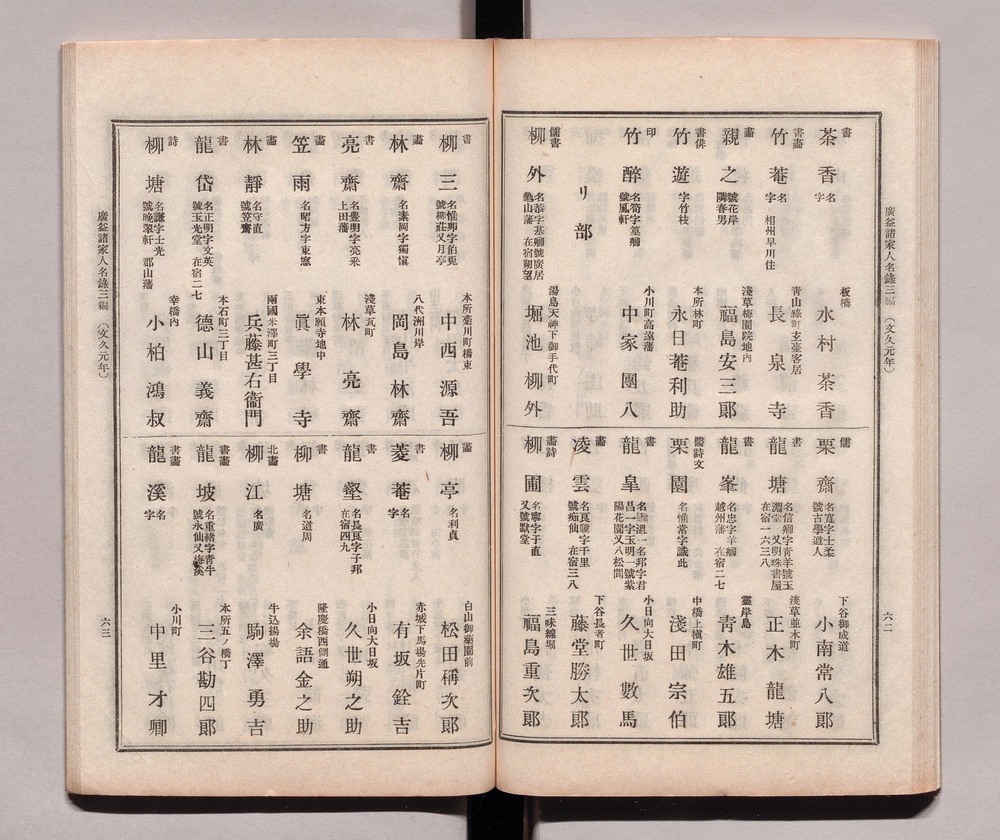 廣益諸家人名錄三編 (文久元年)
六二
書 茶香 名 字 板橋 水村茶香
書畵 竹菴 名 字 相州早川住 青山綠町玄臺客居 長泉寺
畵 親之 號花岸 隣春男 淺草梅園院地內 福島安三郞
書俳 竹遊 字竹枝 本所林町 永日菴利助
印 竹醉 名筍字篁卿 號風軒 小川町高遠藩 中家團八
リ部
儒書 柳外 名恭字基卿號廣居 龜山藩 在宿朔望 湯島天神下御手代町 堀池柳外
儒 栗齋 名寬字士柔 號古學道人 下谷御成道 小南常八郞
書 龍塘 名信卿字靑羊號玉 淵堂又明珠書屋 在宿一六三八 淺草並木町 正木龍塘
書 龍峯 名忠字羊卿 越州藩 在宿二七 靈岸島 靑木雄五郞
醫詩文 栗園 名惟常字識此 中橋上槇町 淺田宗伯
書 龍皐 一名邦字君 昌一字玉明一號紫 陽花園又八松間 小日向大日坂 久世數馬
畵 凌雲 名良驥字千里 號痴仙 在宿三八 下谷長者町 藤堂勝太郞
畵詩 柳圃 名寧字子直 又號默堂 三味線堀 福島重次郞
書 柳三 名惟卯字伯兎 號柳莊又月亭 本所菊川町橋東 中西源吾
畵 林齋 名素岡字獨愼 八代洲川岸 岡島林齋
書 亮齋 名豊明字亮采 上田藩 淺草瓦町 林亮齋
畵 笠雨 名昭方字東寧 東本願寺地中 眞學寺
畵 林靜 名守直 號笠齋 兩國米澤町三丁目 兵藤甚右衞門
書 龍岱 名正明字文英 號玉光堂 在宿二七 本石町三丁目 德山義齋
詩 柳塘 名謙字士光 號晚翠軒 郡山藩 幸橋內 小柏鴻叔
畵 柳亭 名利貞 白山御藥園前 松田稱次郞
書 菱菴 名 字 赤城下馬場先片町 有坂銓吉
書 龍壑 名長良字子邦 在宿四九 小日向大日坂 久世朔之助
書 柳塘 名道周 隆慶橋西側通 余語金之助
北畵 柳江 名廣 牛込揚場 駒澤勇吉
書畵 龍坡 名重緒字靑牛 號永仙又梅溪 本所五ノ橋丁 三谷勘四郞
書畵 龍溪 名 字 小川町 中里才卿
廣益諸家人名錄三編 (文久元年)
六三